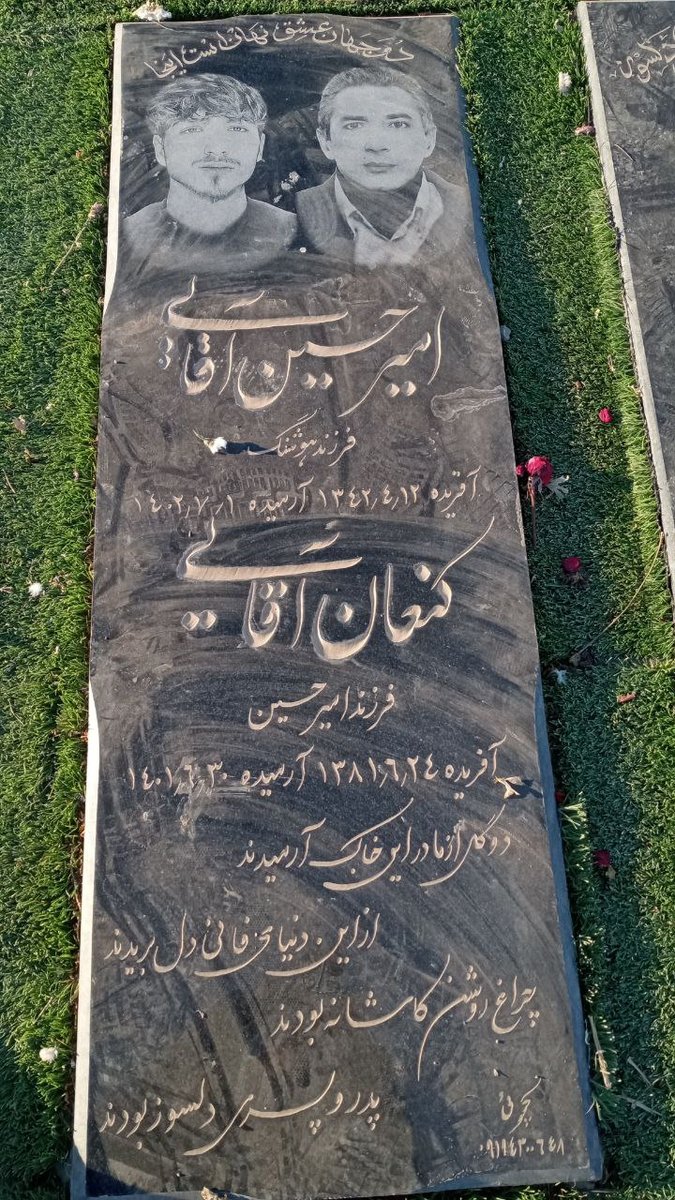 دو جهان عشق نهان است اینجا
امیر حسین آقایی
فرزند هوشنگ
آفریده ۱۳۴۲٫۴٫۱۲ آرمیده ۱۴۰۲٫۷٫۱
کنعان آقایی
فرزند امیر حسین
آفریده ۱۳۸۱٫۶٫۲۴ آرمیده ۱۴۰۱٫۶٫۳۰
دو گل از ما در این خاک آرمیدند
از این دنیای فانی دل بریدند
چراغ روشن کاشانه بودند
پدر و پسری دلسوز بودند
۰۹۱۱۹۴۳۰۰۶۴۸